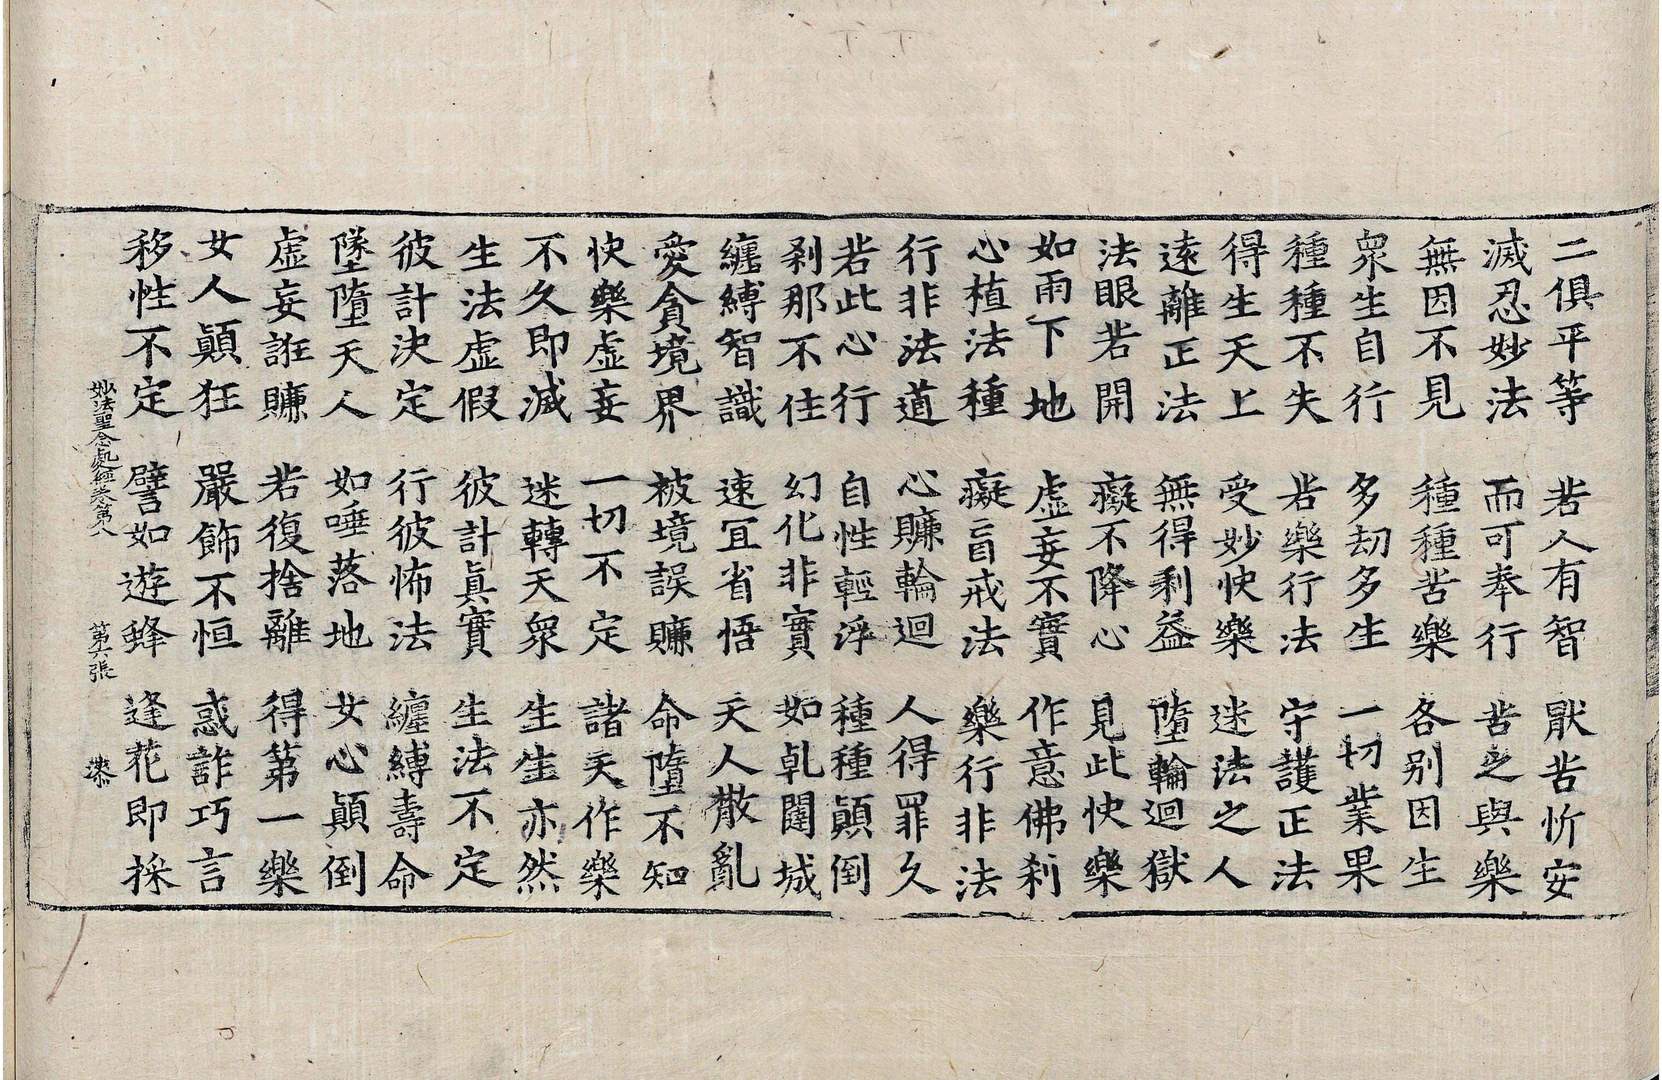 二俱平等　若人有智　猒苦忻安
滅忍妙法　而可奉行　苦之與樂
無因不見　種種苦樂　各别因生
衆生自行　多劫多生　一切業果
種種不失　若樂行法　守護正法
得生天上　受妙快樂　迷法之人
遠離正法　無得利益　墮輪迴獄
法眼若開　癡不降心　見此快樂
如雨下地　虛妄不實　作意佛刹
心植法種　癡盲戒法　樂行非法
行非法道　心賺輪迴　人得罪久
若此心行　自性輕浮　種種顚倒
刹那不住　幻化非實　如乹闥城
纏縛智識　速冝省悟　天人散亂
愛貪境界　被境誤賺　命墮不知
快樂虛妄　一切不定　諸天作樂
不久即滅　迷轉天衆　生生亦然
生法虛假　彼計眞實　生法不定
彼計決定　行彼怖法　纏縛壽命
墜墮天人　如唾落地　女心顚倒
虛妄誑賺　若復捨離　得第一樂
女人顚狂　嚴飾不恒　惑詐巧言
移性不定　譬如遊蜂　逢花即採
妙法聖念處經卷第八　第六張